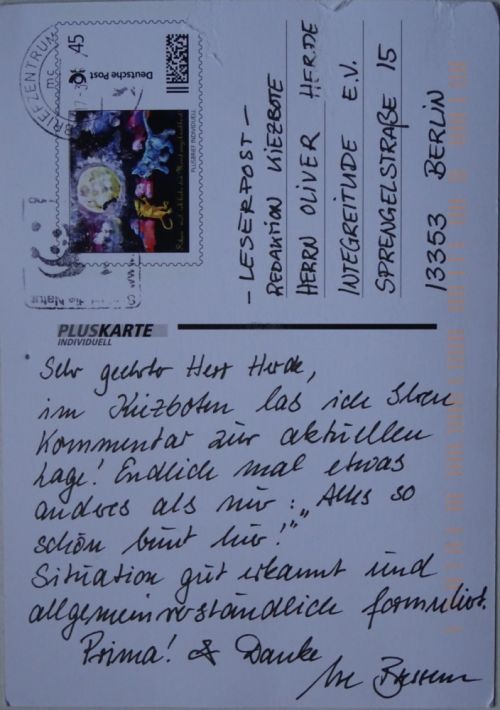 BRIEFZENTRUM
Deutsche Post
,45
PLUSBRIEF INDIVIDUELL
- LESERPOST -
REDAKTION KIEZBOTE
HERRN OLIVER HERDE
INTEGREITUDE E.V.
SPRENGELSTRAßE 15
13353 BERLIN
PLUSKARTE
INDIVIDUELL
Sehr geehrter Herr Herde,
im Kiezboten las ich Ihren
Kommentar zur aktuellen
Lage! Endlich mal etwas
anderes als nur: „Alles so
schön bunt hier!"
Situation gut erkannt und
allgemeinverständlich formuliert.
Prima! & Danke